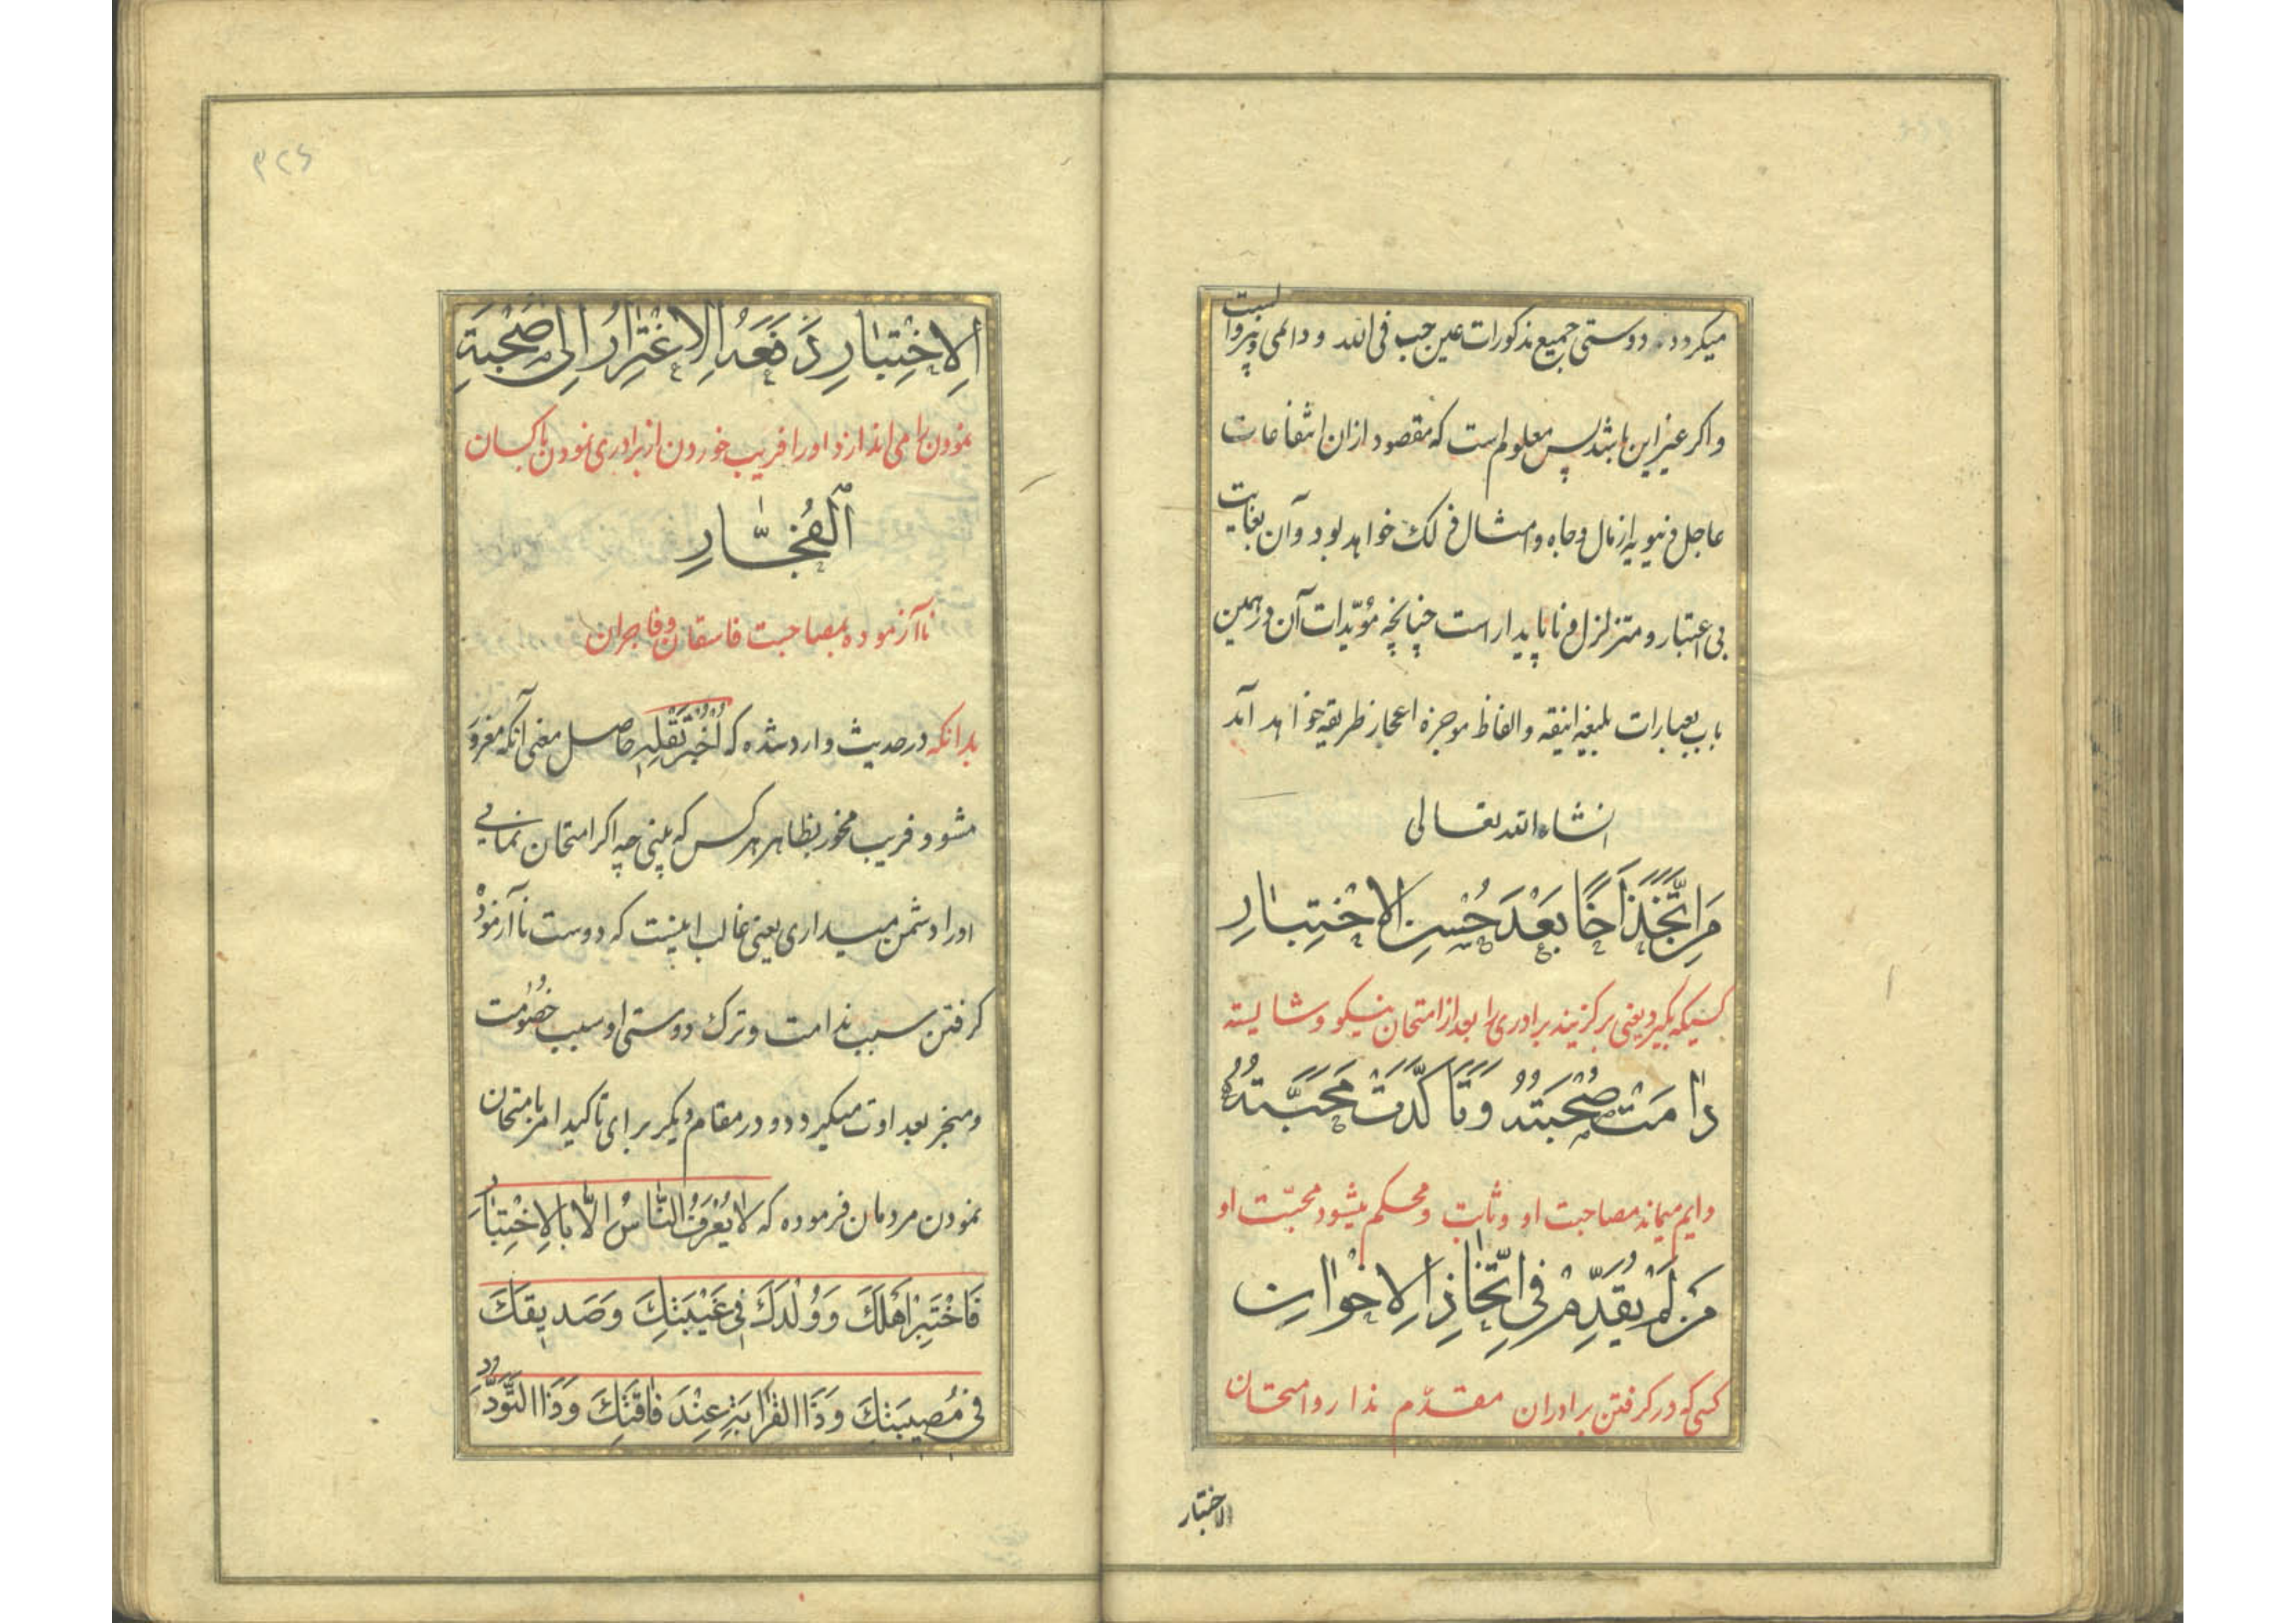 میکردد دوستی جمیع مذکورات عین حب فی الله و دائمی و پیرو است
و اکر غیر این باشد پس معلوم است که مقصود ازان انتفاعات
عاجل دنیویه از مال و جاه و امثال ذلک خواهد بود و آن بغایت
بی اعتبار و متزلزل و ناپایدار است چنانچه مؤیدات آن در همین
باب بعبارات بلیغه انیقه و الفاظ موجزه اعجاز طریقه خواهد آمد
انشاء الله تعالی
مَنِ اتَّخَذَ اَخًا بَعْدَ حُسْنِ الاِخْتِبَارِ
کسیکه بکیرد یعنی برکزیند برادری را بعد از امتحان نیکو و شایسته
دَامَتْ صُحْبَتُهُ وَتَاَكَّدَتْ مَحَبَّتُهُ
دایم میماند مصاحبت او و ثابت و محکم میشود محبّت او
مَنْ لَمْ يُقَدِّمْ فِي اتِّخَاذِ الاِخْوَانِ
کسی که در کرفتن برادران مقدّم ندارد امتحان
الاختبار
۳۲۶
اَلِاخْتِبَارِ دَفَعَهُ الِاغْتِرَارُ اِلٰى صُحْبَةِ
نمودن را می اندازد او را فریب خوردن از برادری نمودن با کسان
اَلْفُجَّارِ
ناآزموده بمصاحبت فاسقان و فاجران
بدانکه در حدیث وارد شده که اُخْبُرْ تَقْلِهِ حاصل معنی آنکه مغرور
مشو و فریب مخور بظاهر هر کس که بینی چه اکر امتحان نمایی
او را دشمن میداری یعنی غالب اینست که دوست ناآزموده
کرفتن سبب ندامت و ترک دوستی او سبب خصومت
و منجر بعداوت میکردد و در مقام دیکر برای تاکید امر بامتحان
نمودن مردمان فرموده که لَا يُعْرَفُ النَّاسُ اِلَّا بِالاِخْتِبَارِ
فَاخْتَبِرْ اَهْلَكَ وَوُلْدَكَ فِي غَيْبَتِكَ وَصَدِيقَكَ
فِي مُصِيبَتِكَ وَذَا الْقَرَابَةِ عِنْدَ فَاقَتِكَ وَذَا التَّوَدُّدِ